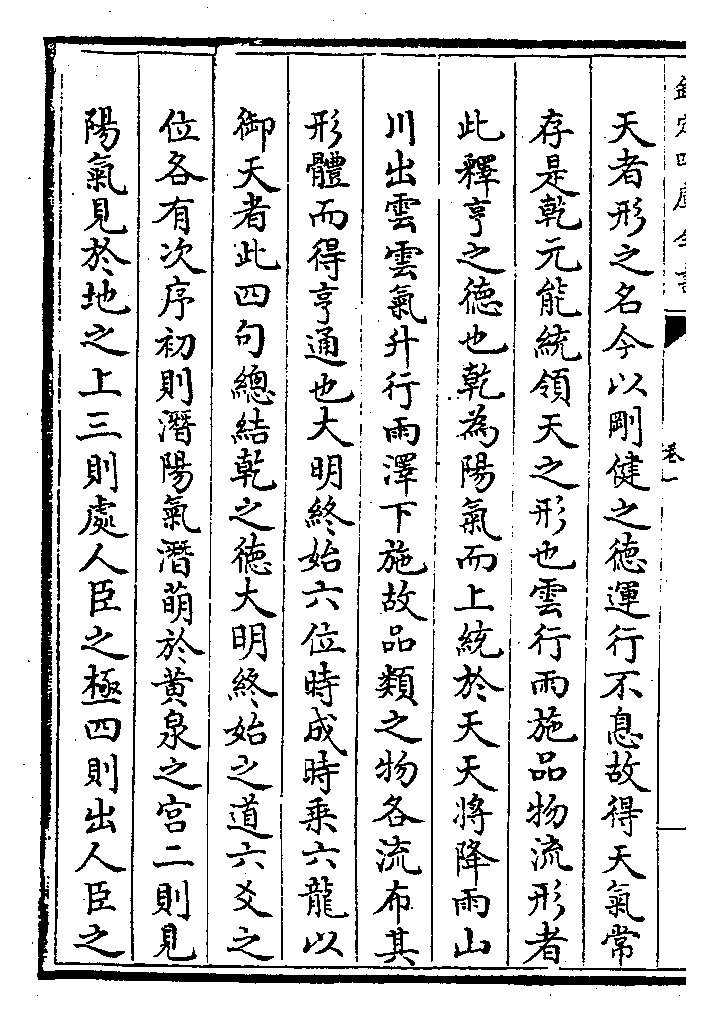 欽定四庫全書
卷一
天者形之名今以剛健之德運行不息故得天氣常
存是乾元能統領天之形也雲行雨施品物流形者
此釋亨之德也乾為陽氣而上統於天天將降雨山
川出雲雲氣升行雨澤下施故品類之物各流布其
形體而得亨通也大明終始六位時成時乘六龍以
御天者此四句總結乾之德大明終始之道六爻之
位各有次序初則潛陽氣潛萌於黃泉之宫二則見
陽氣見於地之上三則處人臣之極四則出人臣之